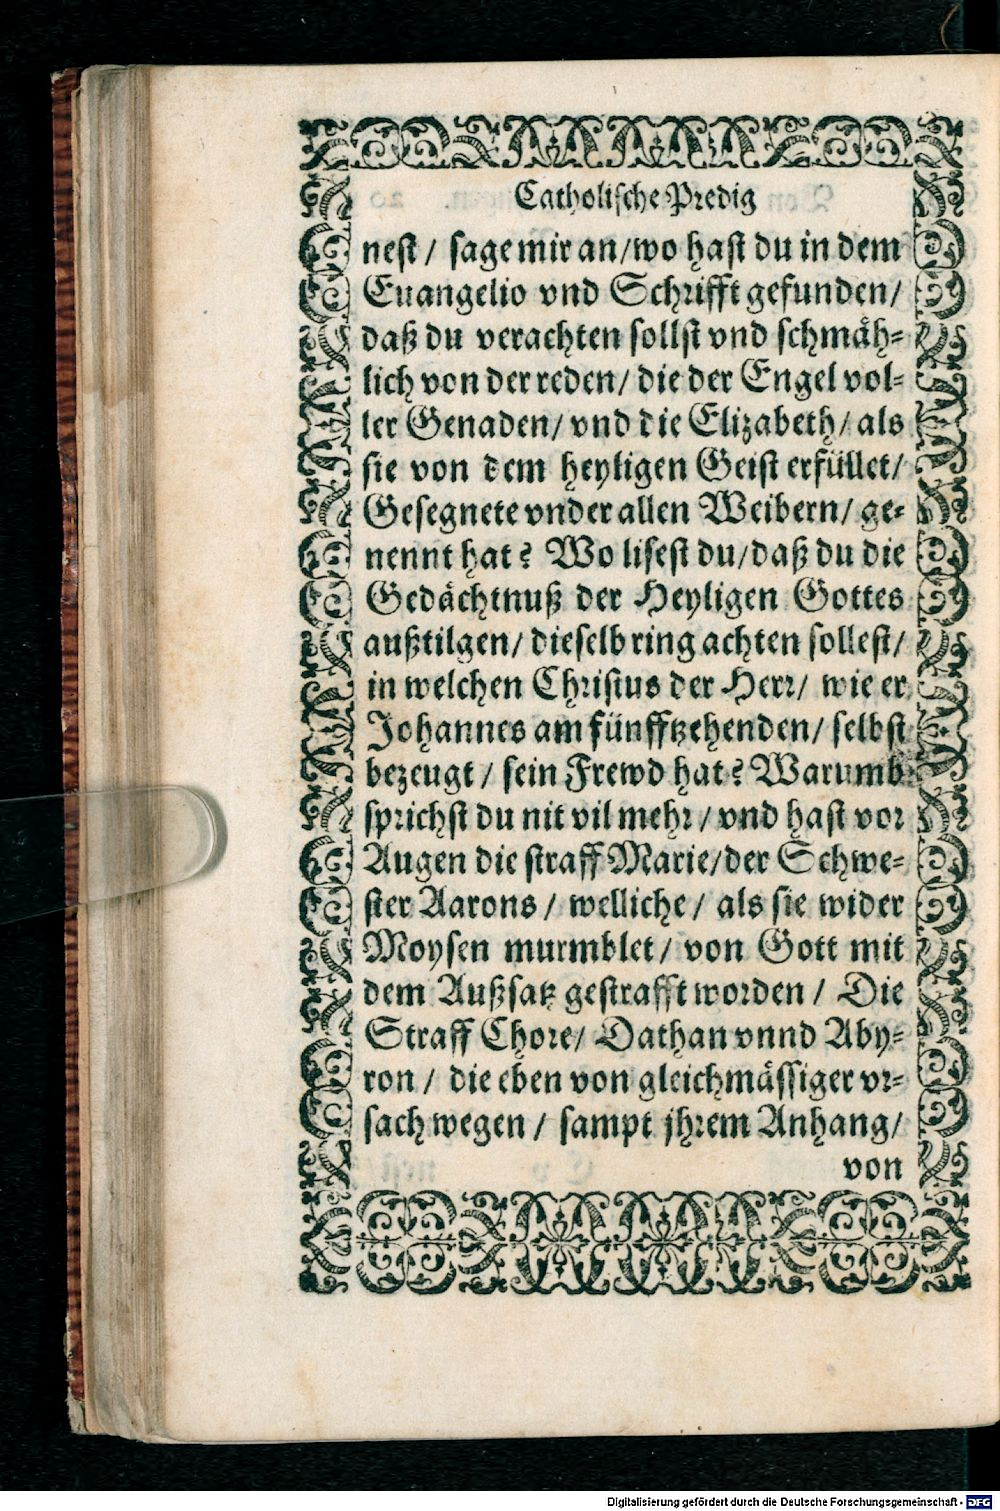 Catholische Predig
nest / sage mir an / wo hast du in dem
Euangelio vnd Schrifft gefunden /
daß du verachten sollst vnd schmäh-
lich von der reden / die der Engel vol-
ler Genaden / vnd die Elizabeth / als
sie von dem heyligen Geist erfüllet /
Gesegnete vnder allen Weibern / ge-
nennt hat? Wo lisest du / daß du die
Gedächtnuß der Heyligen Gottes
außtilgen / dieselb ring achten sollest /
in welchen Christus der Herr / wie er
Johannes am fünfftzehenden / selbst
bezeugt / sein Frewd hat? Warumb
sprichst du nit vil mehr / vnd hast vor
Augen die straff Marie / der Schwe-
ster Aarons / welliche / als sie wider
Moysen murmblet / von Gott mit
dem Außsatz gestrafft worden / Die
Straff Chore / Dathan vnnd Aby-
ron / die eben von gleichmässiger vr-
sach wegen / sampt jhrem Anhang /
von
Digitalisierung gefördert durch die Deutsche Forschungsgemeinschaft - DFG